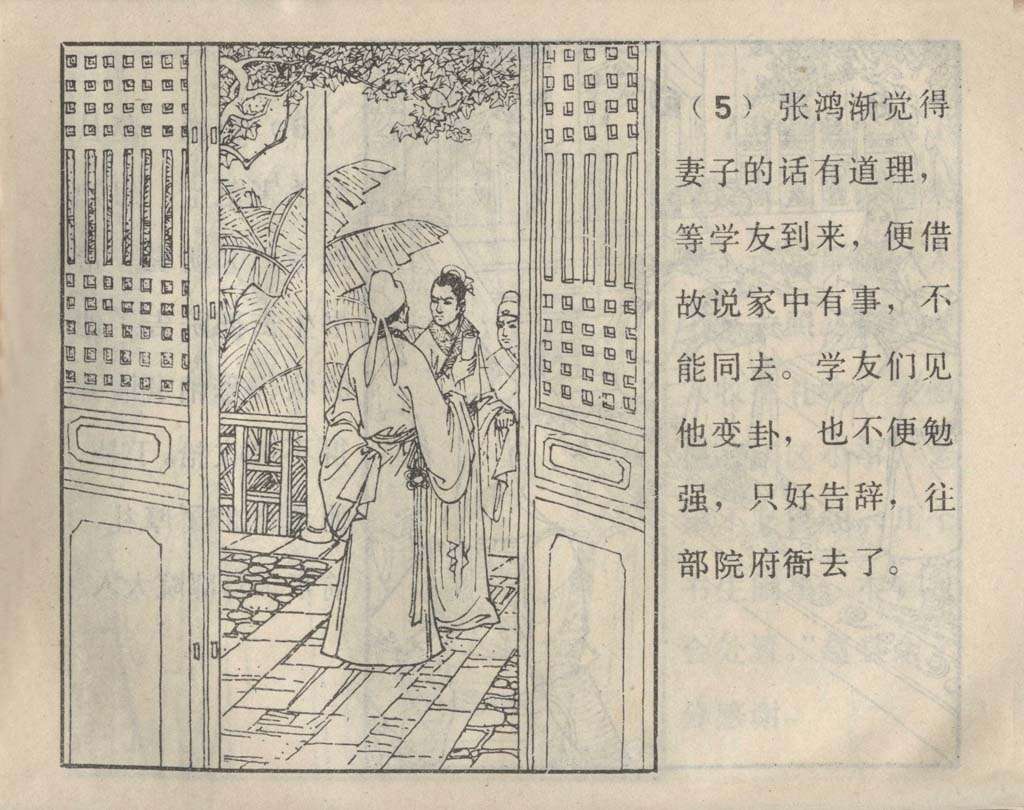 （5）张鸿渐觉得
妻子的话有道理，
等学友到来，便借
故说家中有事，不
能同去。学友们见
他变卦，也不便勉
强，只好告辞，往
部院府衙去了。